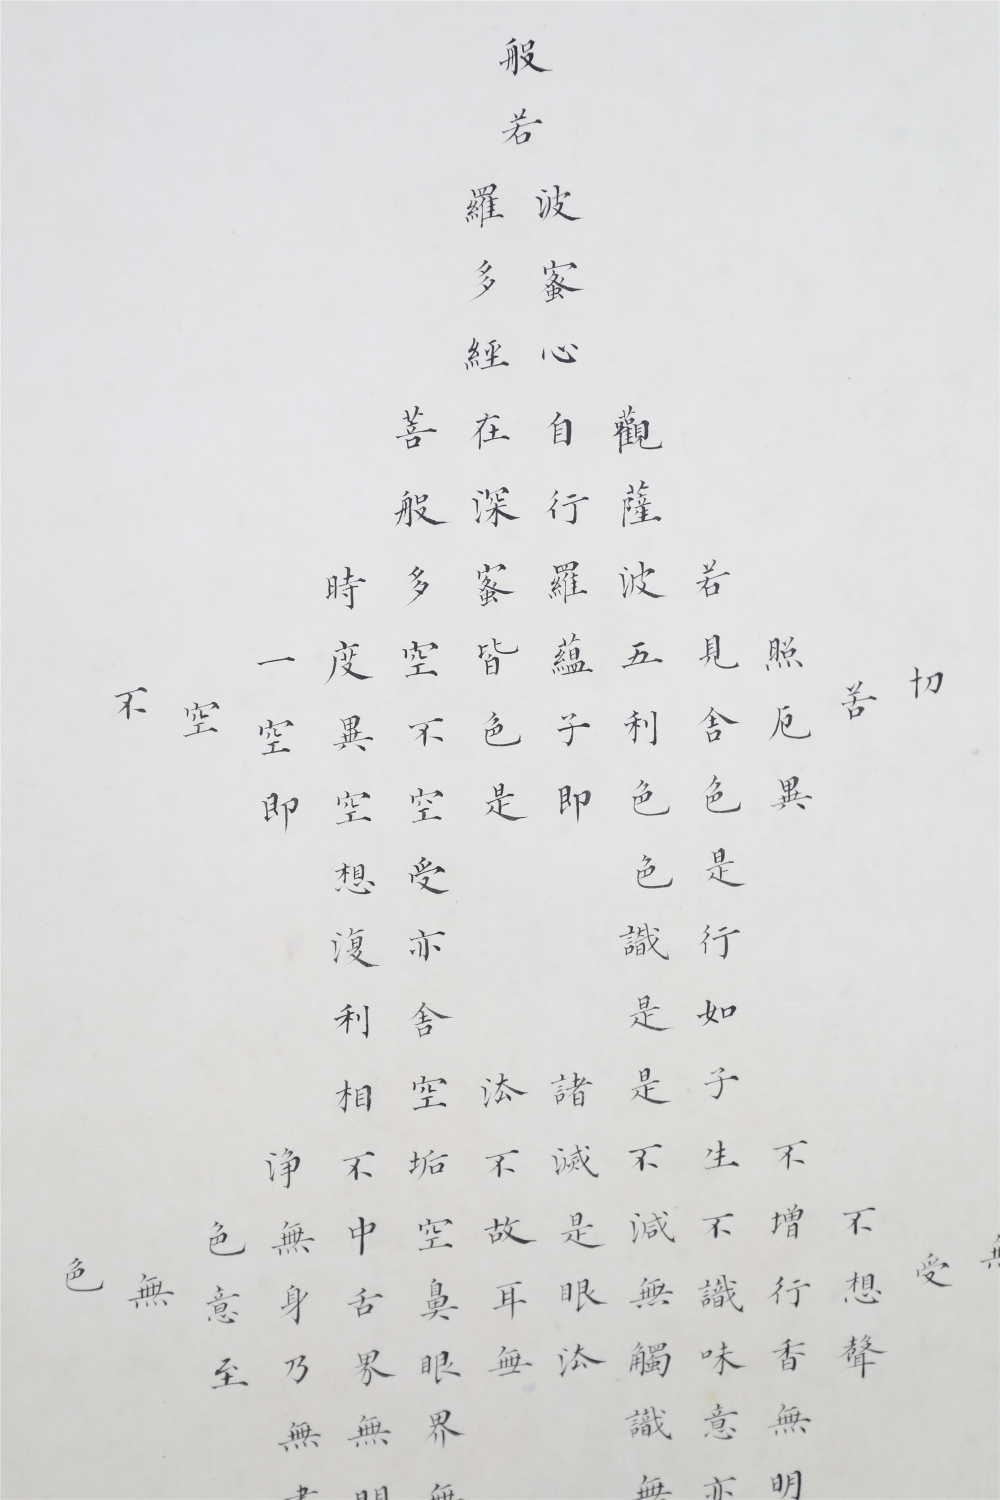 般
若
波羅
蜜多
心經
觀自在菩
薩行深般
若波羅蜜多時
照見五蘊皆空度一
切苦厄舍利子色不異空空不
異色色即是空空即
是色受想
行識亦復
如是舍利
子是諸法空相
不生不滅不垢不淨
不增不減是故空中無色
無受想行識無眼耳鼻舌身意無色
聲香味觸法無眼界乃至
無意識界無無
明亦無無明